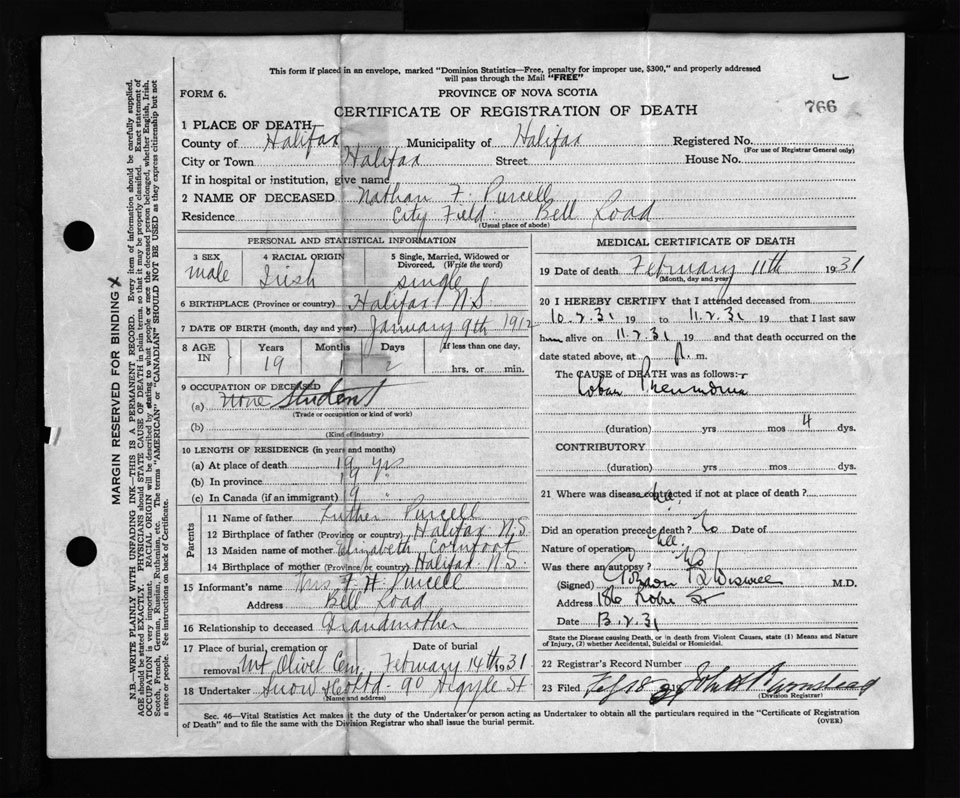 This form if placed in an envelope, marked "Dominion Statistics—Free, penalty for improper use, $300," and properly addressed
will pass through the Mail "FREE"
FORM 6.
PROVINCE OF NOVA SCOTIA
766
CERTIFICATE OF REGISTRATION OF DEATH
1 PLACE OF DEATH—
County of Halifax Municipality of Halifax Registered No.
(For use of Registrar General only)
City or Town Halifax Street House No.
If in hospital or institution, give name
2 NAME OF DECEASED Nathan F. Purcell
Residence City Field Bell Road
(Usual place of abode)
PERSONAL AND STATISTICAL INFORMATION
3 SEX 4 RACIAL ORIGIN 5 Single, Married, Widowed or
Divorced, (Write the word)
male Irish single
6 BIRTHPLACE (Province or country) Halifax N.S
7 DATE OF BIRTH (month, day and year) January 9th 1912
8 AGE IN Years Months Days If less than one day,
19 1 2 hrs. or min.
9 OCCUPATION OF DECEASED
(a) none Student
(Trade or occupation or kind of work)
(b)
(Kind of industry)
10 LENGTH OF RESIDENCE (in years and months)
(a) At place of death 19 yrs
(b) In province 19 "
(c) In Canada (if an immigrant) 19 "
Parents
11 Name of father Luther Purcell
12 Birthplace of father (Province or country) Halifax N.S
13 Maiden name of mother Elizabeth Confoot
14 Birthplace of mother (Province or country) Halifax N.S.
15 Informant's name Mrs F. H. Purcell
Address Bell Road
16 Relationship to deceased Grandmother
17 Place of burial, cremation or Date of burial
removal Mt Olivet Cem. February 14th 1931
18 Undertaker Snow & Co Ltd 90 Argyle St
(Name and address)
MEDICAL CERTIFICATE OF DEATH
19 Date of death February 11th 1931
(Month, day and year)
20 I HEREBY CERTIFY that I attended deceased from
10.2.31 19 to 11.2.31 19 that I last saw
him alive on 11.2.31 19 and that death occurred on the
date stated above, at P. m.
The CAUSE of DEATH was as follows:—
Lobar Pneumonia
(duration) yrs mos 4 dys.
CONTRIBUTORY
(duration) yrs mos dys.
21 Where was disease contracted if not at place of death?
Did an operation precede death? No Date of
Nature of operation
Was there an autopsy? No
(Signed) M.D.
Address 186 Robie St
Date 13.2.31
State the Disease causing Death, or in death from Violent Causes, state (1) Means and Nature
of Injury, (2) whether Accidental, Suicidal or Homicidal.
22 Registrar's Record Number
23 Filed Feb 18 1931 John H Barnstead
(Division Registrar)
Sec. 46—Vital Statistics Act makes it the duty of the Undertaker or person acting as Undertaker to obtain all the particulars required in the "Certificate of Registration
of Death" and to file the same with the Division Registrar who shall issue the burial permit.
(OVER)
MARGIN RESERVED FOR BINDING X
N.B.—WRITE PLAINLY WITH UNFADING INK—THIS IS A PERMANENT RECORD. Every item of information should be carefully supplied.
AGE should be stated EXACTLY. PHYSICIANS should STATE CAUSE OF DEATH in plain terms, so that it may be properly classified. Exact statement of
OCCUPATION is very important. RACIAL ORIGIN will be described by stating to what people or race the deceased person belonged, whether English, Irish,
Scotch, French, German, Russian, Ruthenian, etc. The terms "AMERICAN" or "CANADIAN" SHOULD NOT BE USED as they express citizenship but not
a race or people. See instructions on back of Certificate.